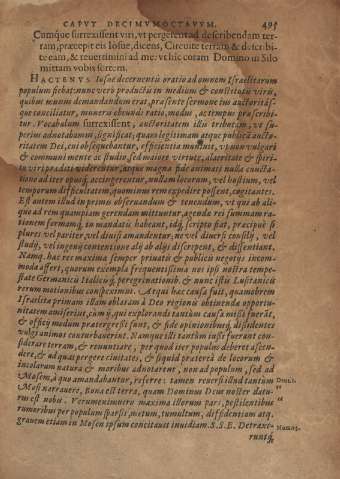 CAPVT DECIMVMOCTAVVM. 495
Cumque surrexissent viri, vt pergerent ad describendam ter-
ram, præcepit eis Iosue, dicens, Circuite terram & describi-
te eam, & reuertimini ad me: vt hic coram Domino in Silo
mittam vobis sortem.
HACTENVS Iosue decernentis oratio ad omnem Israelitarum
populum fiebat: nunc vero productis in medium & constitutis viris,
quibus munus demandandum erat, præsente sermone eis auctoritas-
que conciliatur, muneris obeundi ratio, modus, ac tempus præscribi-
tur. Vocabulum surrexissent, auctoritatem illis tributam, vt su-
perius adnotabamus, significat; quam legitimam atque publica aucto-
ritatem Dei, cui obsequebantur, efficientia muniuit, vt non vulgari
& communi mente ac studio, sed maiore virtute, alacritate & spiri-
tu viri præditi viderentur, atque magna fide animati nulla cuncta-
tione ad iter opusque accingerentur, nullam locorum, vel hostium, vel
temporum difficultatem, quominus rem expedire possent, cogitantes.
Est autem illud in primis obseruandum & tenendum, vt qui ab ali-
quo ad rem quampiam gerendam mittuntur, agendæ rei summam ra-
tionem in mandatis habeant, idque scripto fiat, præcipue si
plures vel pariter, vel diuisi amandentur, ne vel diuersi consilij, vel
studij, vel ingenij contentione alij ab alijs discrepent, & dissentiant.
Namque hæc res maxima semper priuatis & publicis negotijs incom-
moda affert, quorum exempla frequentissima nos ipsi nostra tempe-
state Germanicis Italicisque peregrinationib. & nunc istis Lusitanicis
rerum motionibus conspeximus. Atqui hac causa fuit, quamobrem
Israelitæ primam illam oblatam à Deo regionis obtinenda opportu-
nitatem amiserint, cum ij, qui explorandi tantum causa missi fuerāt,
& officij modum prætergressi sunt, & side opinionibusque dissidentes
vulgi animos conturbauerint. Namque illi tantum iussi fuerant con-
siderare terram, & renuntiare, per quod iter populus deberet ascen-
dere, & ad quas pergere ciuitates, & siquid præterea de locorum &
incolarum natura & moribus adnotarent, non ad populum, sed ad
Mosem, à quo amandabantur, referre: tamen reuersi illud tantùm
Mosi narrauere, Bona est terra, quam Dominus Deus noster datu-
rus est nobis. Verumenimuero maxima illorum pars, pestilentibus
rumoribus per populum sparsis, metum, tumultum, diffidentiam atque
grauem etiam in Mosen ipsum concitauit inuidiam. S.S.E. Detraxe-
runtque